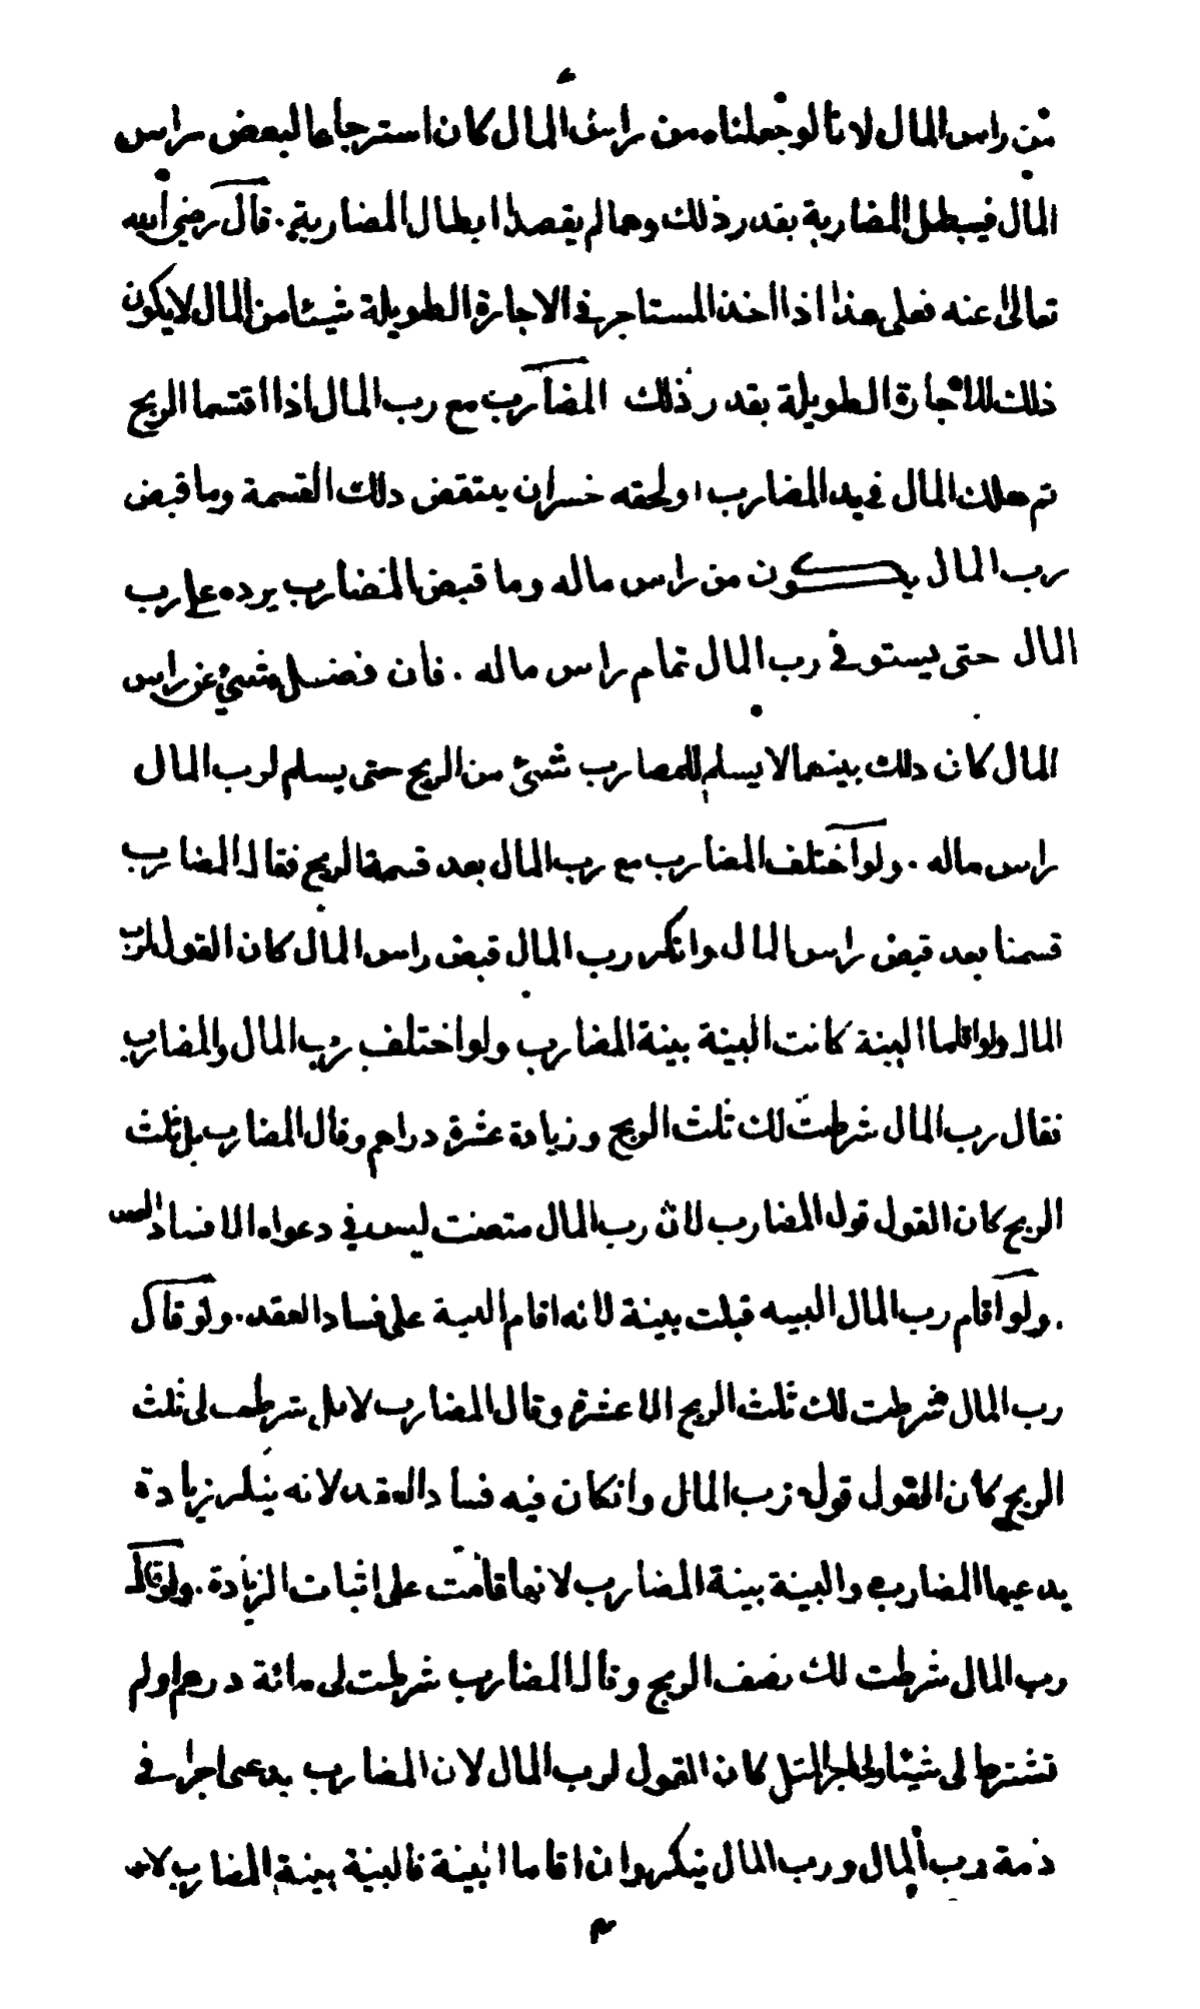 من راس المال لانا لو جعلناه من راس المال كان استرجاعا لبعض راس
المال فيبطل المضاربة بقدر ذلك وهما لم يقصدا ابطال المضاربة. قال رضي الله
تعالى عنه فعلى هذا اذا اخذ المستاجر في الاجارة الطويلة شيئا من المال لا يكون
ذلك للاجارة الطويلة بقدر ذلك المضارب مع رب المال اذا اقتسما الربح
ثم هلك المال في يد المضارب او لحقه خسران ينتقض ذلك القسمة وما قبض
رب المال يكون من راس ماله وما قبض المضارب يرده على رب
المال حتى يستوفي رب المال تمام راس ماله. فان فضل شيئ عن راس
المال كان ذلك بينهما لا يسلم للمضارب شيئ من الربح حتى يسلم لرب المال
راس ماله. ولو اختلف المضارب مع رب المال بعد قسمة الربح فقال المضارب
قسمنا بعد قبض راس المال وانكر رب المال قبض راس المال كان القول لرب
المال ولو اقاما البينة كانت البينة بينة المضارب ولو اختلف رب المال والمضارب
فقال رب المال شرطت لك ثلث الربح وزيادة عشرة دراهم وقال المضارب بل ثلث
الربح كان القول قول المضارب لان رب المال متعنت ليس في دعواه الا فساد
. ولو اقام رب المال البينه قبلت بينة لانه اقام البينة على فساد العقد. ولو قال
رب المال شرطت لك ثلث الربح الا عشرة وقال المضارب لا بل شرطت لى ثلث
الربح كان القول قول رب المال وانكان فيه فساد العقد لانه ينكر زيادة
يدعيها المضارب والبينة بينة المضارب لانها قامت على اثبات الزيادة. ولو قال
رب المال شرطت لك نصف الربح وقال المضارب شرطت لى مائة درهم او لم
تشترط لى شيئا ولى اجر المثل كان القول لرب المال لان المضارب يدعى اجرا في
ذمة رب المال ورب المال ينكر وان اقاما البينة فالبينة بينة المضارب لانه